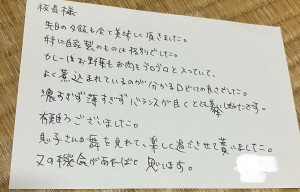 校長様
先日の夕飯も全て美味しく頂きました。
特に自家製のものは格別でした。
カレーはお野菜もお肉もゴロゴロと入っていて、
よく煮込まれているのが分かるひとつの良さでした。
濃すぎず薄すぎずバランスが良くとても美味しかったです。
有難うございました。
息子さんの舞を見れて、楽しく過ごさせて貰いました。
又の機会があればと思います。